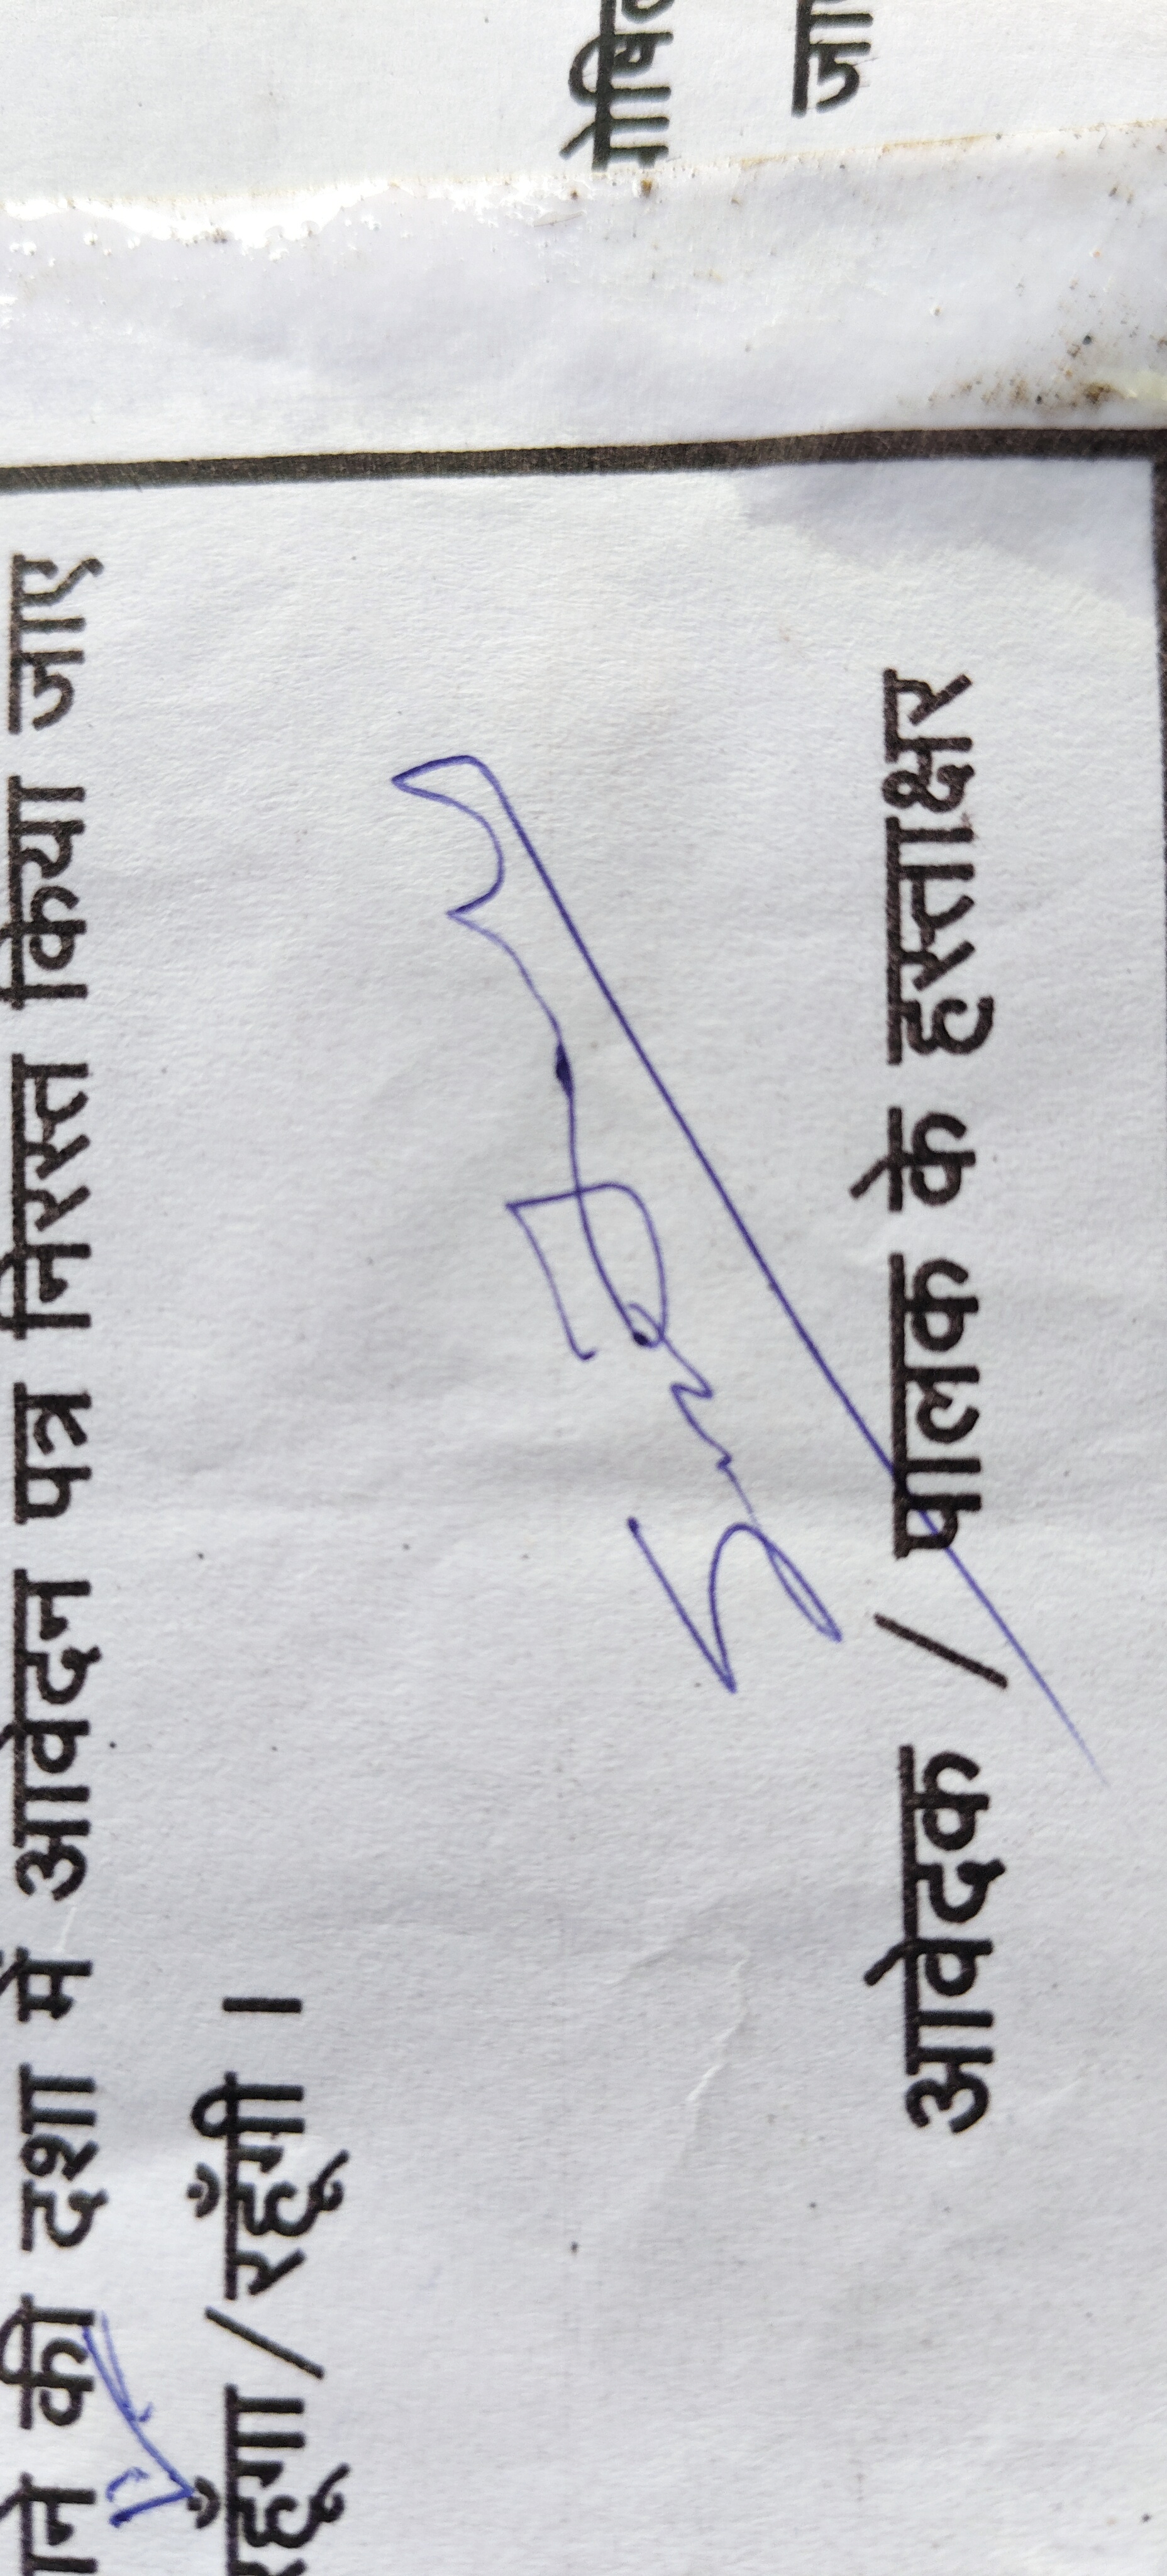 की दशा में आवेदन पत्र निरस्त किया जाए
/रहूँगी ।
आवेदक / पालक के हस्ताक्षर